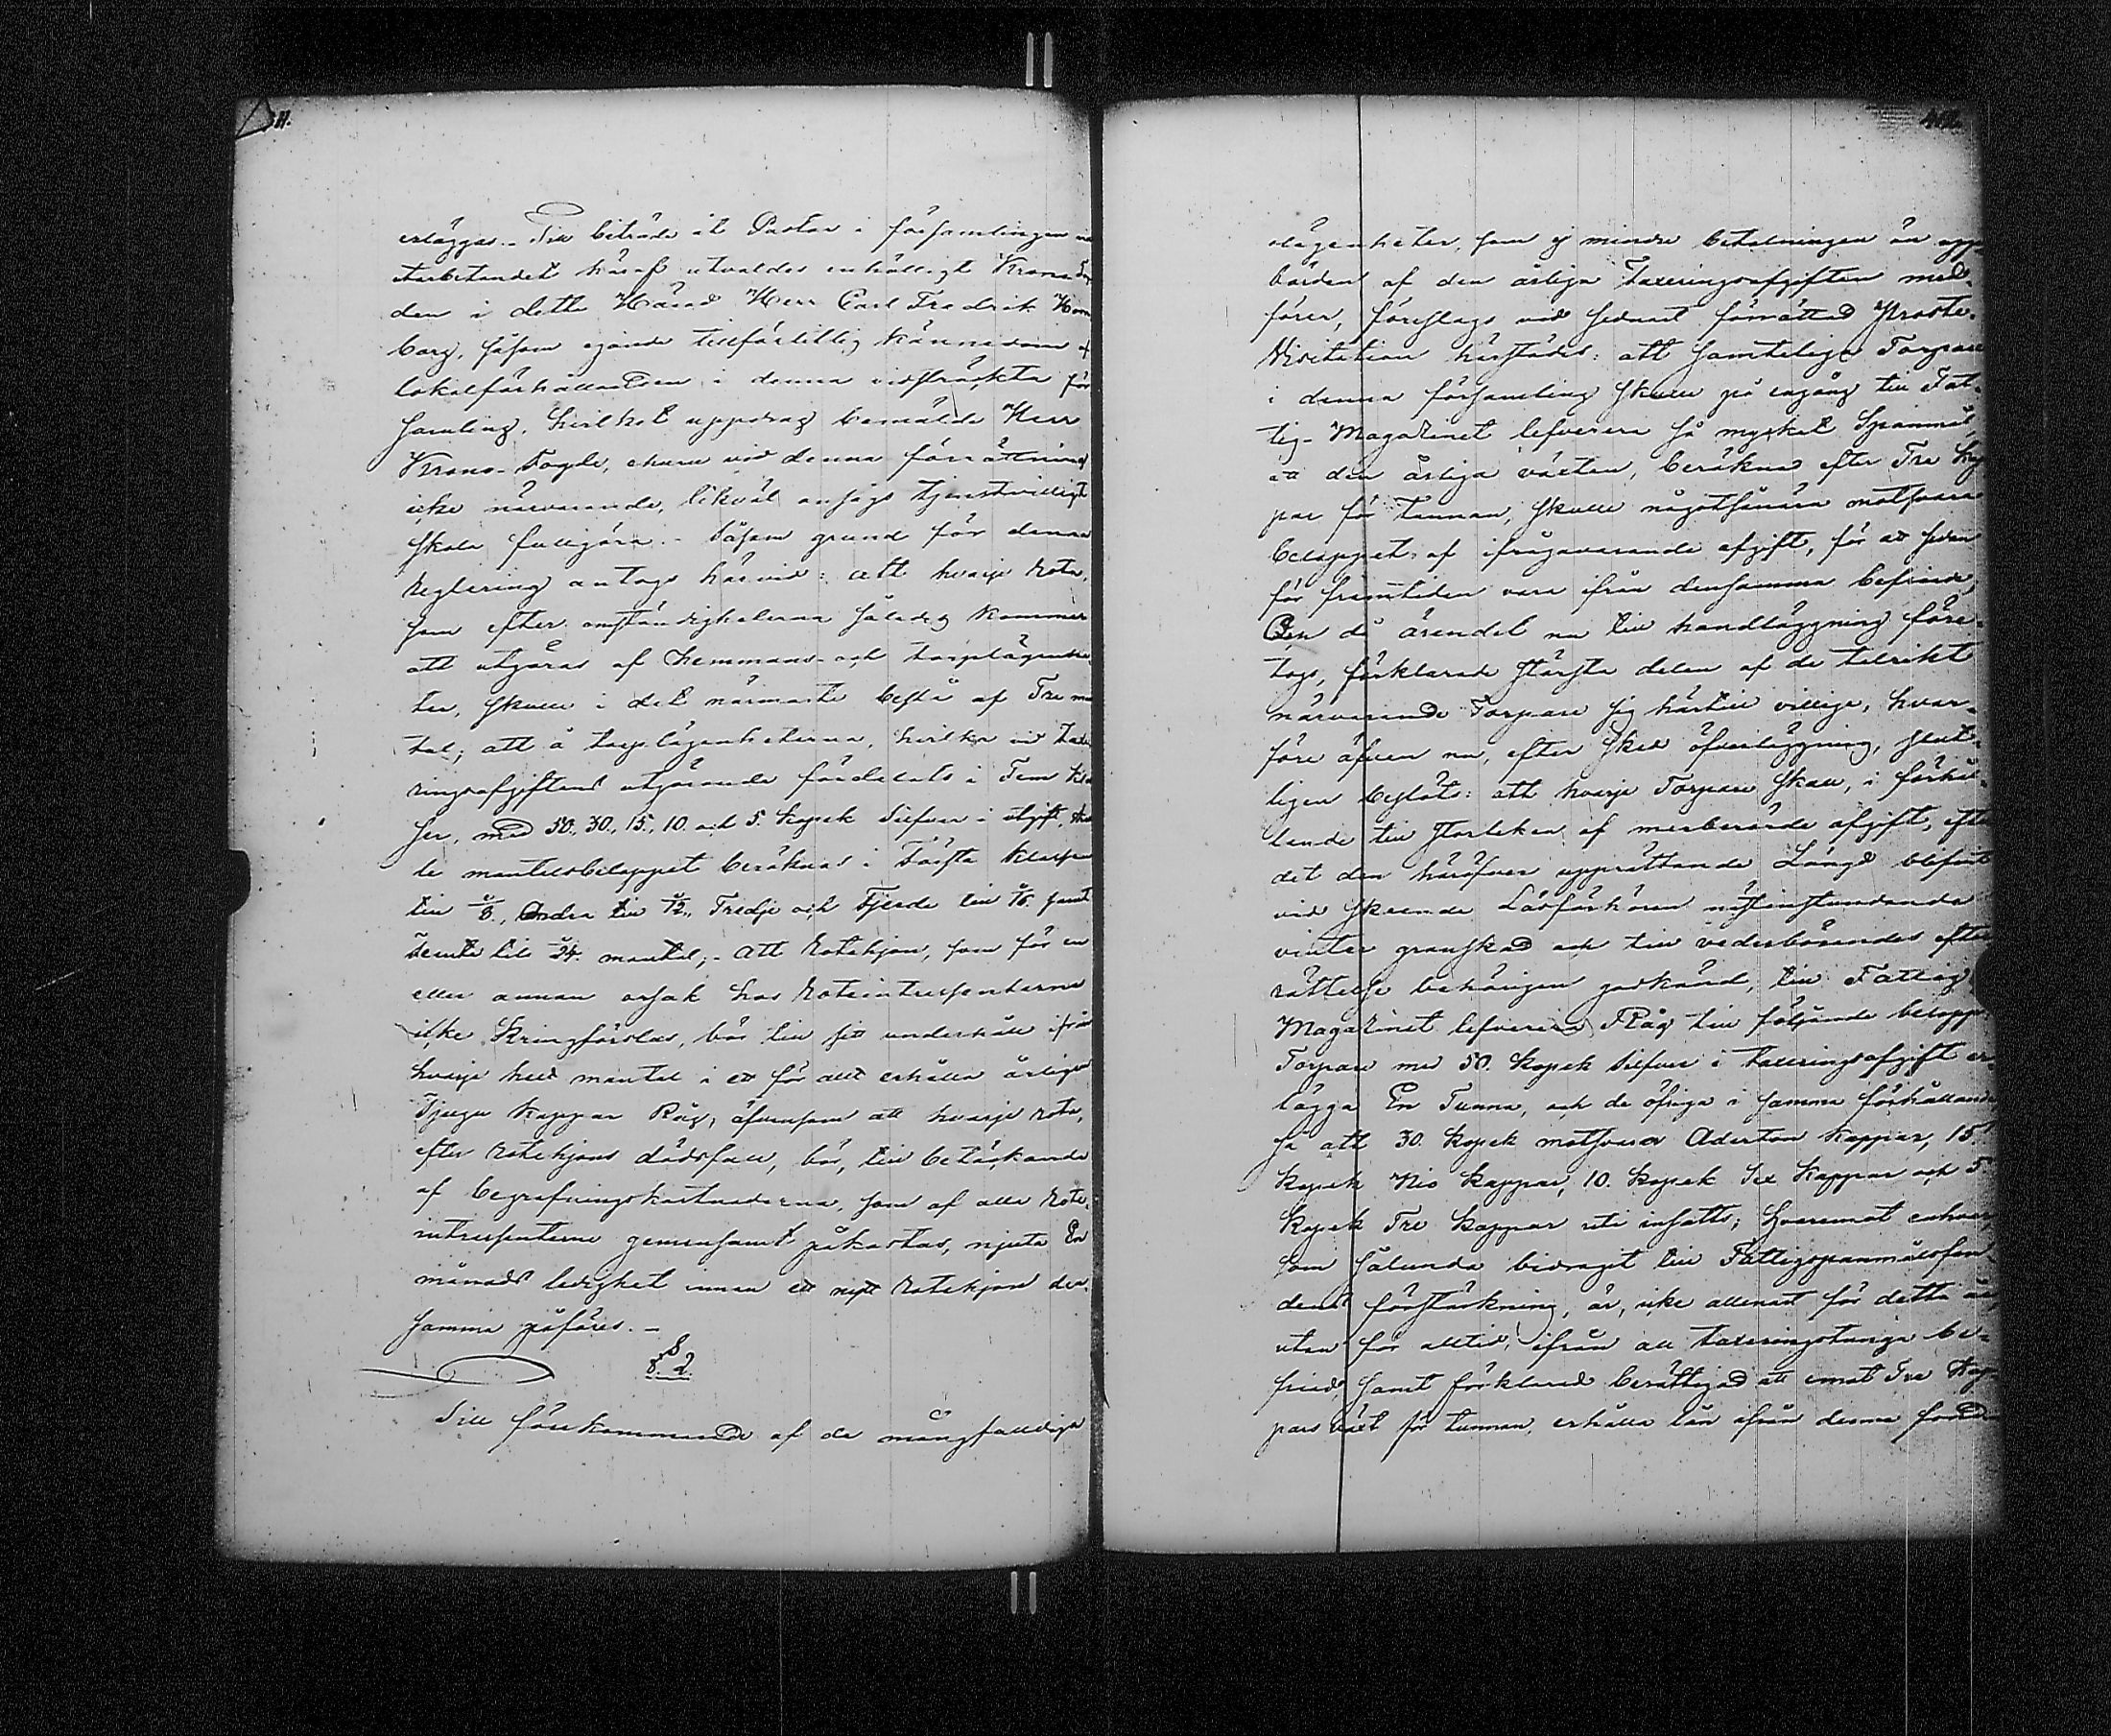 11.
erlägges. Till biträde åt Pastor i församlingen
utarbetandet häraf utvaldes enhälligt Krono
den i detta Härad Herr Carl Fredrik
borg, såsom egande tillförlitlig kännedom af
lokalförhållanden i denna vidsträckta för
samling, hvilket uppdrag bemälde Herr
Krono-Fogde, ehuru vid denna förrättning
icke närvarande, likväl ansågs tjenstvilligt
skola fullgöra. - Såsom grund för denna
reglering antogs härvid: att hvarje Rota,
som efter omständigheterna således kommer
att utgöras af hemmans- och torplägenhe
ter, skulle i det närmaste bestå af Tre man
tal; att å torplägenheterna, hvilka vid taxe
ringsafgiftens utgörande fördelats i Fem klas
ser, med 50., 30., 15., 10. och 5. kopek Silfver i afgift,
le mantalsbeloppet beräknas i Första klassen
till 1/8., Andra till 1/12., Tredje och Fjerde till 1/16. samt
Femte till 1/24. mantal; - att Rotehjon, som för en
eller annan orsak hos Roteintressenterna
icke kringföres, bör till sitt underhåll ifrån
hvarje helt mantal i ett för allt erhålla årligen
Tjugu kappar Råg; äfvensom att hvarje rota,
efter Rotehjons dödsfall, bör, till betäckande
af begrafningskostnaderna, som af alla Rote-
intressenterne gemensamt påkostas, njuta En
månads ledighet innan ett nytt Rotehjon den-
samma påföres. -
§. 2.
Till förekommande af de mångfalldiga
olägenheter, som ej mindre betalningen än upp-
börden af den årliga Taxeringsafgiften med-
förer, föreslags vid sednast förrättad Proste-
Visitation härstädes: att samtelige Torpare
i denna församling skulle på engång till Fat-
tig-Magazinet lefverera så mycket Spanmål,
att den årliga växten, beräknad efter Tre kap
par för tunnan, skulle någotsånära motsvara
beloppet af ifrågavarande afgift, för att sedan
för framtiden vara ifrån densamma befriade,
Och då ärendet nu till handläggning före-
togs, förklarade största delen af de talrikt
närvarande Torpare sig härtill villige, hvar-
före äfven nu, efter skedd öfverläggning, slut-
ligen beslöts: att hvarje Torpare skall, i förhål-
lande till storleken af merberörde afgift, efter
det den häröfver upprättande Längd blifvit
vid skeende Läsförhören nästinstundande
vinter granskad och till vederbörandes efter
rättelse behörigen godkänd, till Fattig
Magazinet lefverera Råg till följande belopp:
Torpare med 50. kopek silfver i taxeringsafgift er-
lägga En Tunna, och de öfriga i samma förhållande
så att 30. kopek motsvarar Aderton kappar, 15.
kopek Nio kappar, 10. kopek Sex kappar och 5.
kopek Tre kappar uti insatts; hvaremot enhvar,
som sålunda bidragit till Fattigspanmålsfon
dens förstärkning, är, icke allenast för detta år,
utan för alltid, ifrån all taxeringstunga be-
friad samt förklarad berättigad att emot Tre Kap-
pars växt för tunnan, erhålla lån ifrån denna fond